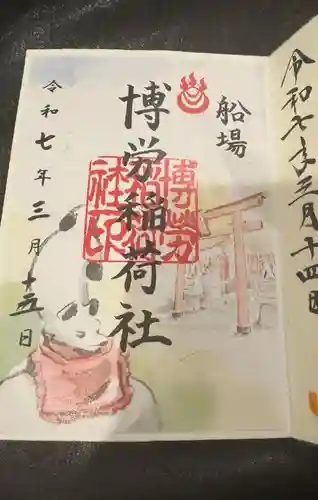 船場
博労稲荷社
博労稲荷社印
令和七年三月十五日
令和七年三月十四日